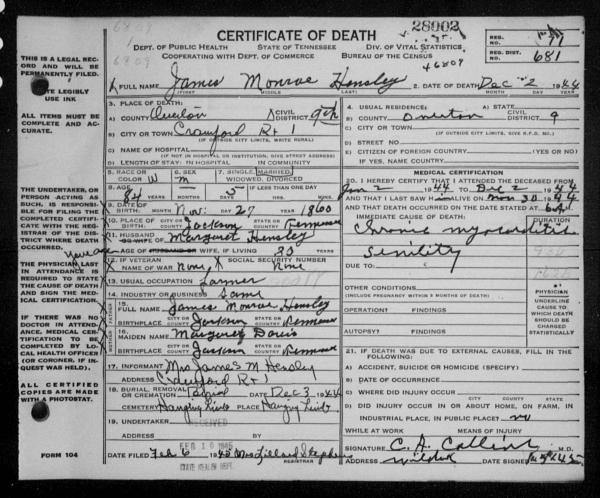 28002
CERTIFICATE OF DEATH
DEPT. OF PUBLIC HEALTH STATE OF TENNESSEE DIV. OF VITAL STATISTICS
COOPERATING WITH DEPT. OF COMMERCE BUREAU OF THE CENSUS
46809
REG. NO. 77
REG. DIST. 681
6809
6809
THIS IS A LEGAL RECORD AND WILL BE PERMANENTLY FILED.
TYPE LEGIBLY
USE INK
ALL ITEMS MUST BE COMPLETE AND ACCURATE.
THE UNDERTAKER, OR PERSON ACTING AS SUCH, IS RESPONSIBLE FOR FILING THE COMPLETED CERTIFICATE WITH THE REGISTRAR OF THE DISTRICT WHERE DEATH OCCURRED.
THE PHYSICIAN LAST IN ATTENDANCE IS REQUIRED TO STATE THE CAUSE OF DEATH AND SIGN THE MEDICAL CERTIFICATION.
IF THERE WAS NO DOCTOR IN ATTENDANCE, MEDICAL CERTIFICATION TO BE COMPLETED BY LOCAL HEALTH OFFICER (OR CORONER, IF INQUEST WAS HELD).
ALL CERTIFIED COPIES ARE MADE WITH A PHOTOSTAT.
FORM 104
1. FULL NAME James Monroe Hensley 2. DATE OF DEATH Dec 2 1944
(FIRST) (MIDDLE) (LAST) MONTH DAY YEAR
3. PLACE OF DEATH:
A. COUNTY Overton CIVIL DISTRICT 9th
B. CITY OR TOWN Crawford Rt 1
(IF OUTSIDE CITY LIMITS, WRITE RURAL)
C. NAME OF HOSPITAL
(IF NOT IN HOSPITAL OR INSTITUTION, GIVE STREET ADDRESS)
D. LENGTH OF STAY: IN HOSPITAL IN COMMUNITY
4. USUAL RESIDENCE: A. STATE
B. COUNTY Overton CIVIL DISTRICT 9
C. CITY OR TOWN
(IF OUTSIDE CITY LIMITS, GIVE R.F.D. NO.)
D. STREET NO.
E. CITIZEN OF FOREIGN COUNTRY (YES OR NO)
IF YES, NAME COUNTRY
5. RACE OR COLOR W 6. SEX M 7. SINGLE, MARRIED, WIDOWED, DIVORCED
8. AGE 84 YEARS MONTHS 5 DAYS IF LESS THAN ONE DAY HRS. MIN.
9. DATE OF BIRTH: Nov. 27 1860
MONTH DAY YEAR
10. PLACE OF BIRTH CITY OR COUNTY Jackson STATE OR COUNTRY Tennessee
11. HUSBAND OR WIFE OF Margaret Hensley
AGE OF HUSBAND OR WIFE, IF LIVING 35 YEARS
12. IF VETERAN NAME OF WAR None SOCIAL SECURITY NUMBER None
13. USUAL OCCUPATION Farmer
14. INDUSTRY OR BUSINESS Same
15. FULL NAME James Monroe Hensley
BIRTHPLACE CITY OR COUNTY Jackson STATE OR COUNTRY Tennessee
16. MAIDEN NAME Margaret Davis
BIRTHPLACE CITY OR COUNTY Jackson STATE OR COUNTRY Tennessee
17. INFORMANT Mrs James M Hensley
ADDRESS Crawford Rt 1
18. BURIAL, REMOVAL OR CREMATION Burial DATE Dec 3 1944
CEMETERY PLACE
19. UNDERTAKER
ADDRESS
RECEIVED
FEB 10 1945
STATE HEALTH DEPT.
DATE FILED Feb 6 1945 Mrs Lillard Stephens
REGISTRAR
MEDICAL CERTIFICATION
20. I HEREBY CERTIFY THAT I ATTENDED THE DECEASED FROM
Jan 2 1944 TO Dec 2 1944
AND THAT I LAST SAW HIM ALIVE ON Nov 30 1944
AND THAT DEATH OCCURRED ON THE DATE STATED AT M.
IMMEDIATE CAUSE OF DEATH: DURATION
Chronic myocarditis
Senility
DUE TO:
OTHER CONDITIONS:
(INCLUDE PREGNANCY WITHIN 3 MONTHS OF DEATH)
OPERATION? FINDINGS
AUTOPSY? FINDINGS
PHYSICIAN
UNDERLINE CAUSE TO WHICH DEATH SHOULD BE CHARGED STATISTICALLY
21. IF DEATH WAS DUE TO EXTERNAL CAUSES, FILL IN THE FOLLOWING:
A. ACCIDENT, SUICIDE OR HOMICIDE (SPECIFY)
B. DATE OF OCCURRENCE
C. WHERE DID INJURY OCCUR
D. DID INJURY OCCUR IN OR ABOUT HOME, ON FARM, IN
INDUSTRIAL PLACE, IN PUBLIC PLACE? no
WHILE AT WORK MEANS OF INJURY
SIGNATURE C. A. Collins M.D.
ADDRESS Wilder DATE